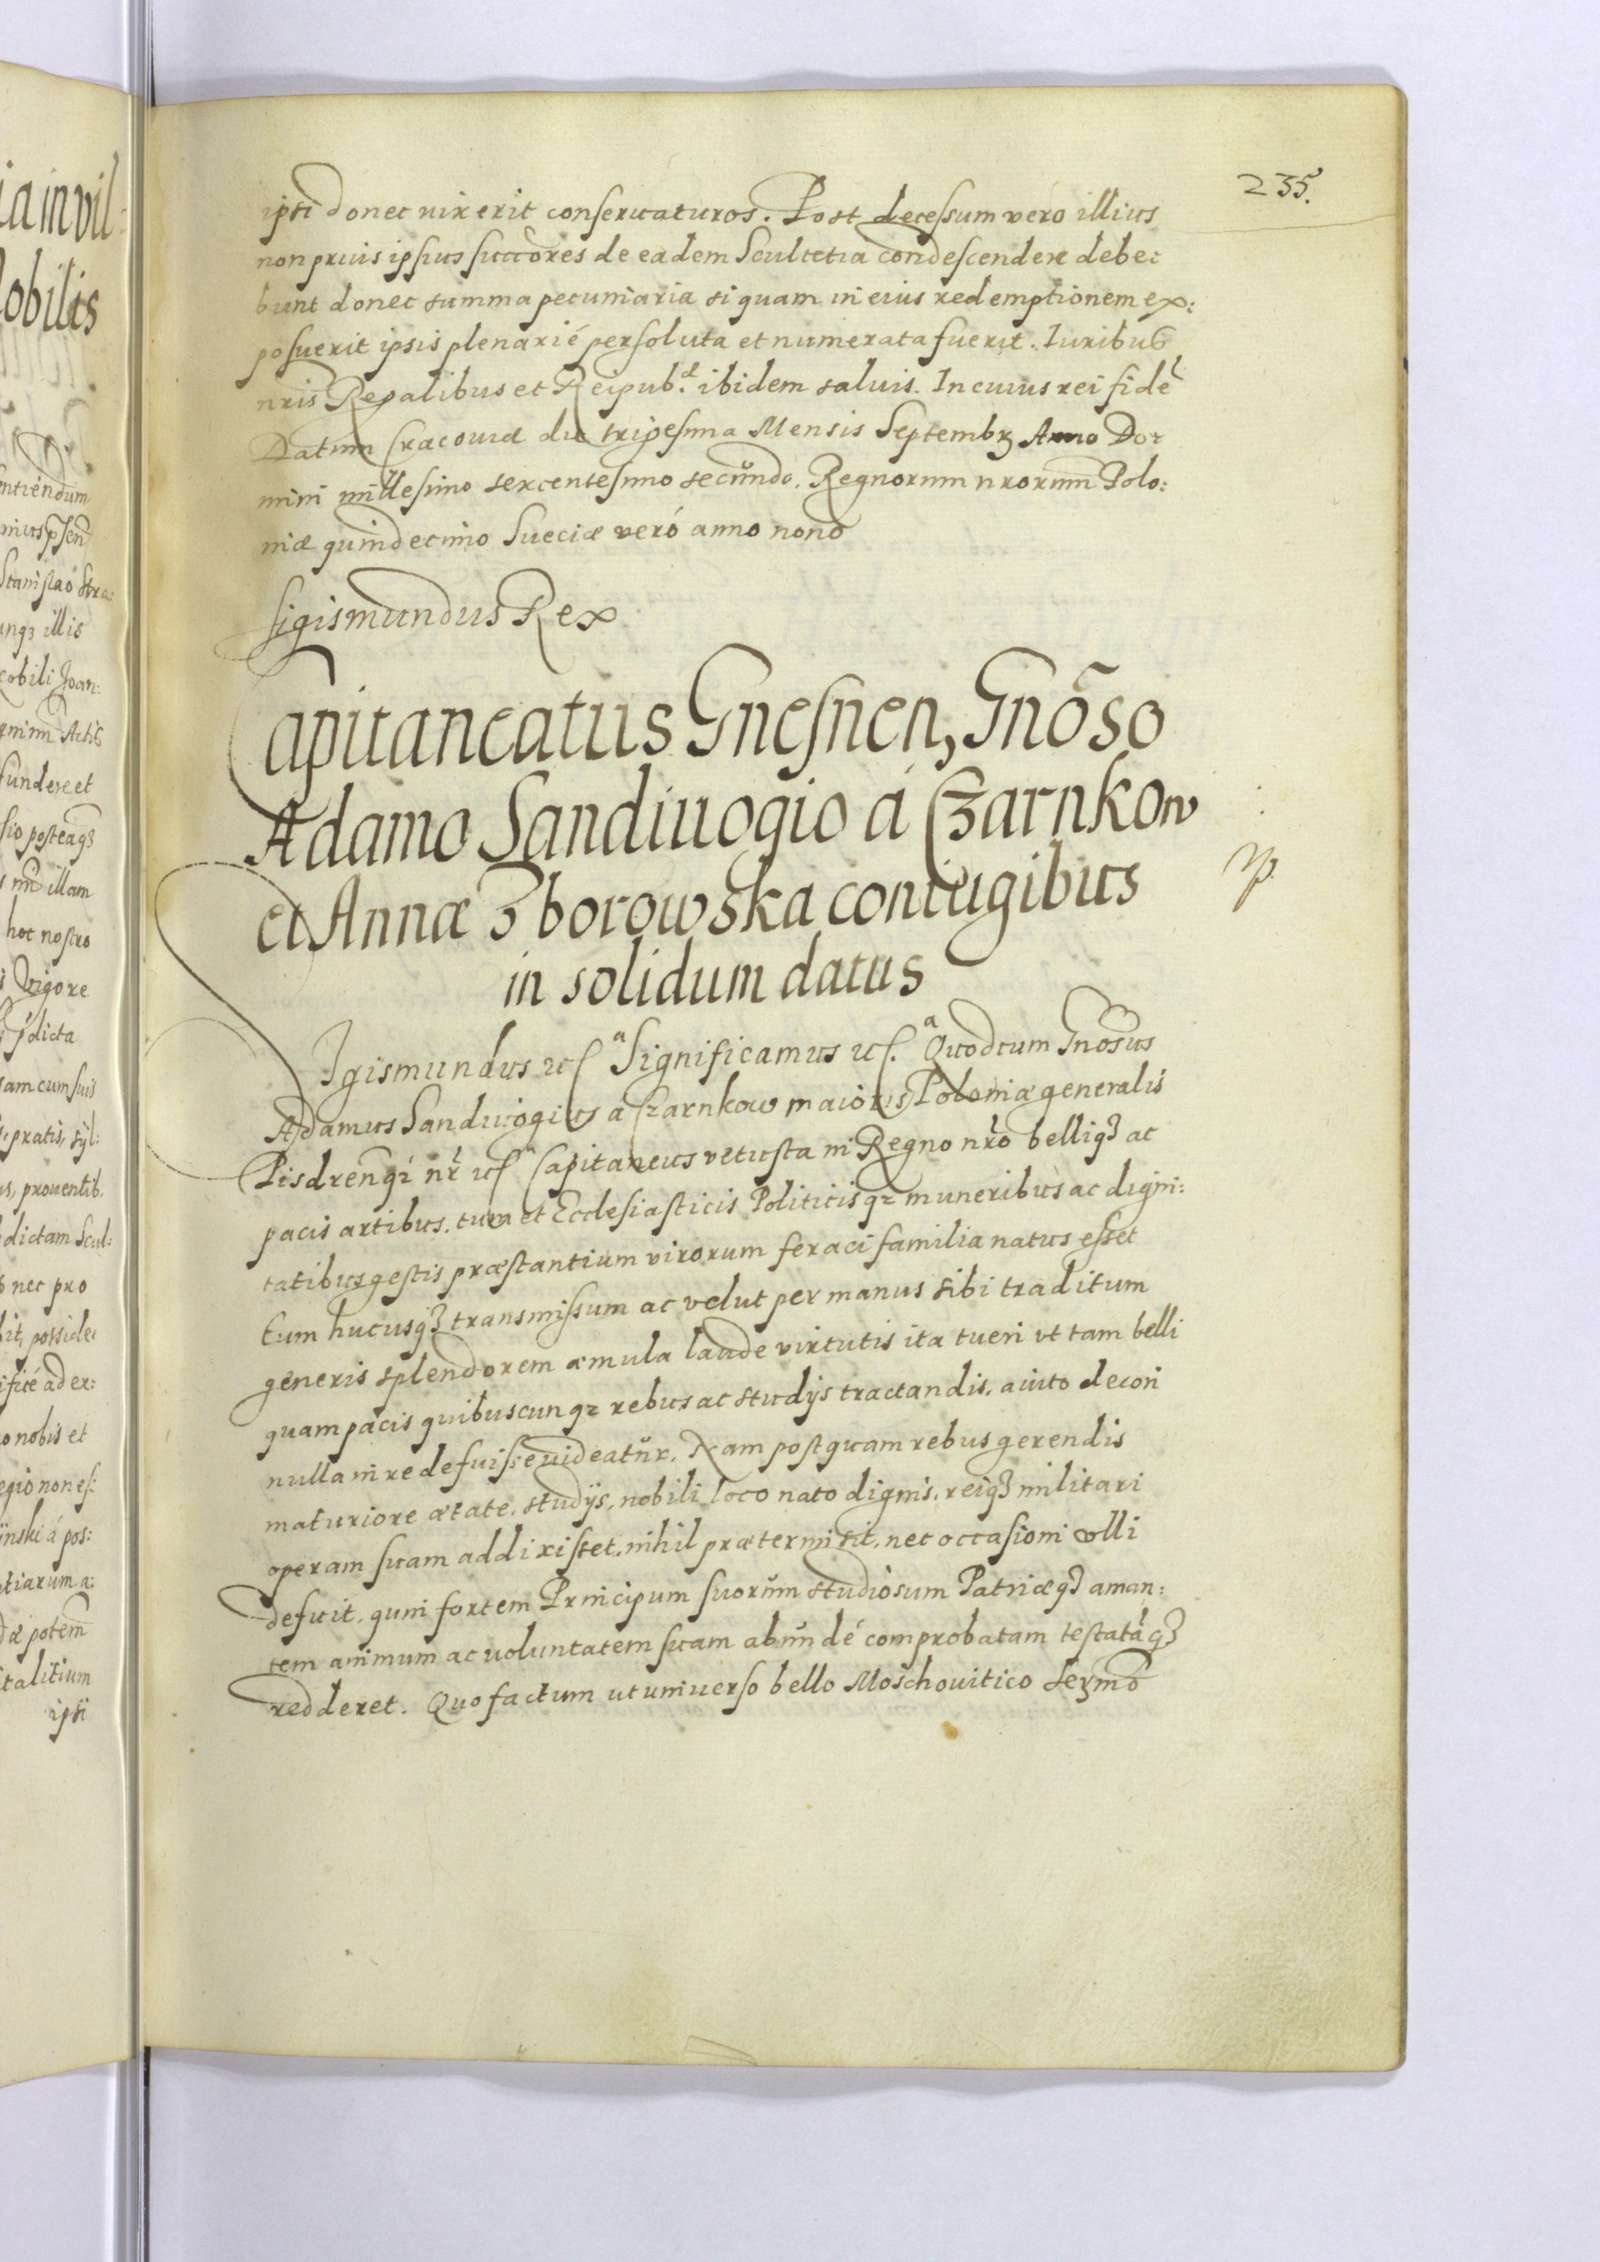 235.
ipsi donec vixerit conservaturos. Post decessum veró illius
non prius ipsius succores de eadem Scultetia condescendere debe:
bunt donec summa pecuniaria si quam in eius redemptionem ex:
posuerit ipsis plenarié persoluta et numerata fuerit. Iuribus
nris Regalibus et Reipub. ibidem saluis. In cuius rei fidē
Datum Cracouiæ die trigesima Mensis Septembɜ Anno Do:
mini millesimo sexcentesimo secundo. Regnorum nrorum Polo:
niæ quindecimo Sueciæ veró anno nono
Sigismundus Rex
Capitaneatus Gnesnen, Gnōso
Adamo Sandiuogio á Czarnkow
et Annæ Zborowska coniugibus
in solidum datus
Sigismundus Significamus Quod cum Gnosus
Adamus Sandiuogius a Czarnkow maioris Poloniæ generalis
Pisdrenqɜ nr Capitaneus vetusta in Regno nro belliqɜ ac
pacis artibus. tum et Ecclesiasticis Politicisqɜ muneribus ac digni:
tatibus gestis præstantium virorum feraci familia natus esset
Eum hucusqɜ transmissum ac velut per manus sibi traditum
generis splendorem æmula laude virtutis ita tueri vt tam belli
quam pacis quibuscunqɜ rebus ac studijs tractandis. auito decori
nulla in re defuisse uideatur. Nam postquam rebus gerendis
maturiore ætate. studijs, nobili loco nato dignis. reiqɜ militari
operam suam addixisset. nihil prætermisit. nec occasioni vlli
defuit. quin fortem Principum suorum studiosum Patriæqɜ aman:
tem animum ac voluntatem suam abundé comprobatam testatāqɜ
redderet. Quo factum ut uniuerso bello Moschouitico Sermō